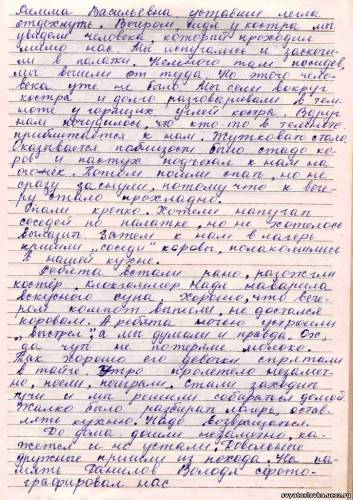 Римма Васильевна уставши легла
отдохнуть. Вечером, сидя у костра мы
увидели человека, который проходил
мимо нас. Мы испугались и заскочи-
ли в палатки. Немного там посидев,
мы вышли от туда. Но этого чело-
века уже не было. Мы сели вокруг
костра и долго разговаривали в тем-
ноте у горящих углей костра. Вдруг
нам почудилось, что кто-то в темноте
приближается к нам. Жутковато стало,
оказывается поблизости было стадо ко-
ров и пастух подъехал к нам на
огонёк. Потом пошли спать, но не
сразу заснули, потому что к вече-
ру стало прохладно.
Спали крепко. Хотели напугать
соседей по палатке, но не хотелось
вылазить. Затем к нам в лагерь
пришли "соседи" коровы, полакомились
в нашей кухне.
Ребята встали рано, разожгли
костёр, Надя наварила
вкусного супа. Хорошо, что вече-
ром компот выпили, не достался
коровам. А ребята ночью устроили
а мы думали и правда. Ох,
да чуть не потеряли молоко.
Так хорошо его девочки спрятали
в тайге. Утро пролетело незамет-
но, поели, поиграли. Стали заходить
тучи и мы решили собираться домой.
Жалко было разбирать лагерь, остав-
лять кухню. Надо возвращаться.
До дома дошли незаметно, ка-
жется и не устали. Довольные
дружные пришли из похода. На па-
мять Данилов Володя сфото-
графировал нас
svyatoslavka.ucoz.ru